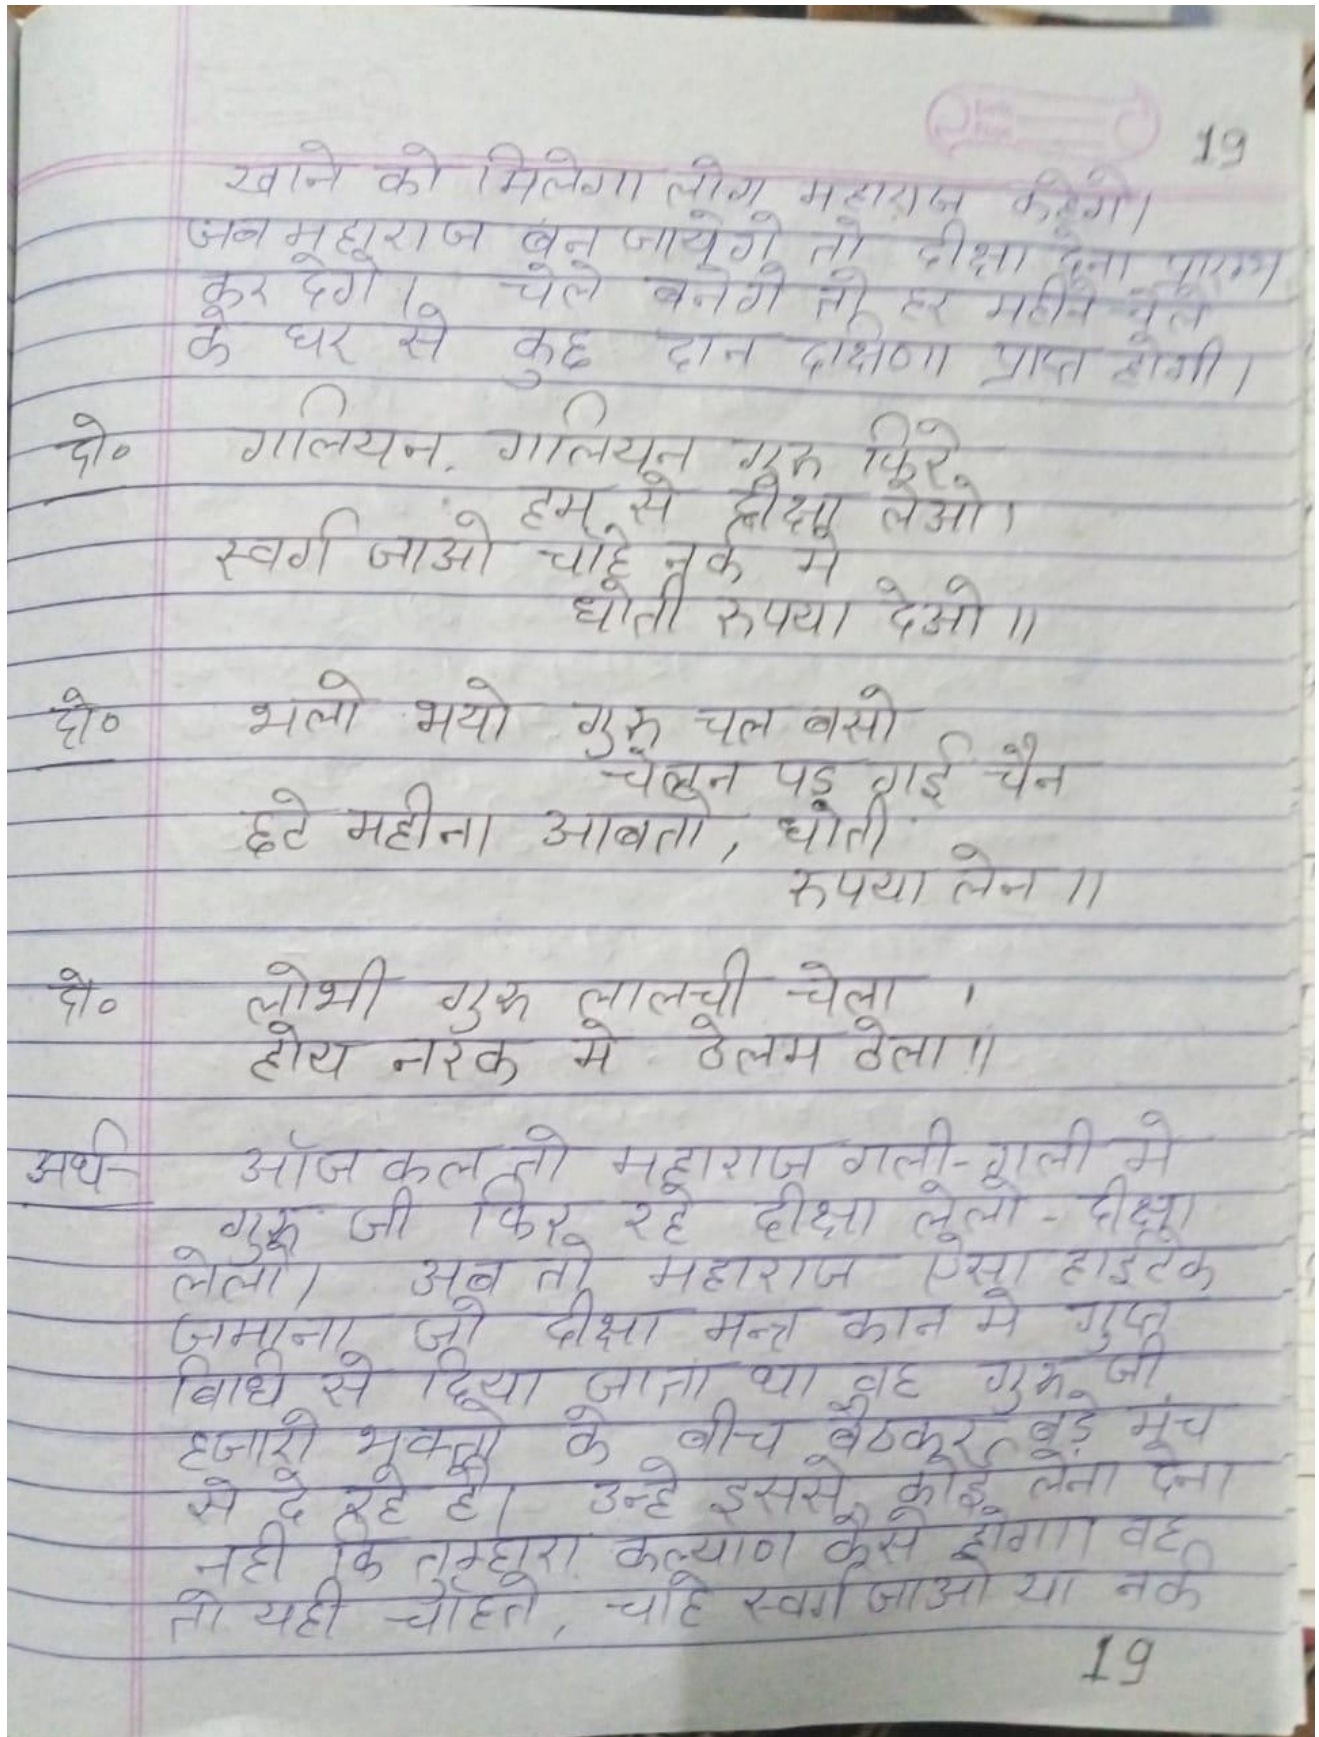 19
खाने को मिलेगा लोग महाराज कहेगे।
जब महाराज बन जायेगे तो दीक्षा देना प्रारम्भ
कर देगे। चेले बनेगे तो हर महीने चेले
के घर से कुछ दान दक्षिणा प्राप्त होगी।
दो० गलियन, गलियन गुरु फिरे,
हम से दीक्षा लेओ।
स्वर्ग जाओ चाहे नर्क मे
धोती रुपया देओ॥
दो० भलो भयो गुरु चल बसो
चेलन पड़ गई चैन
छटे महीना आबतो, धोती
रुपया लेन॥
दो० लोभी गुरु लालची चेला ।
होय नरक मे ठेलम ठेला॥
अर्थ- ऑज कल तो महाराज गली-गली मे
गुरु जी फिर रहे दीक्षा लेलो - दीक्षा
लेलो। अब तो महाराज ऐसा हाइटेक
जमाना जो दीक्षा मन्त्र कान मे गुप्त
बिधि से दिया जाता था वह गुरु जी
हजारो भक्तो के बीच बैठकर बड़े मंच
से दे रहे है। उन्हे इससे कोई लेना देना
नही कि तुम्हारा कल्याण कैसे होगा। वह
तो यही चाहते, चाहे स्वर्ग जाओ या नर्क
19